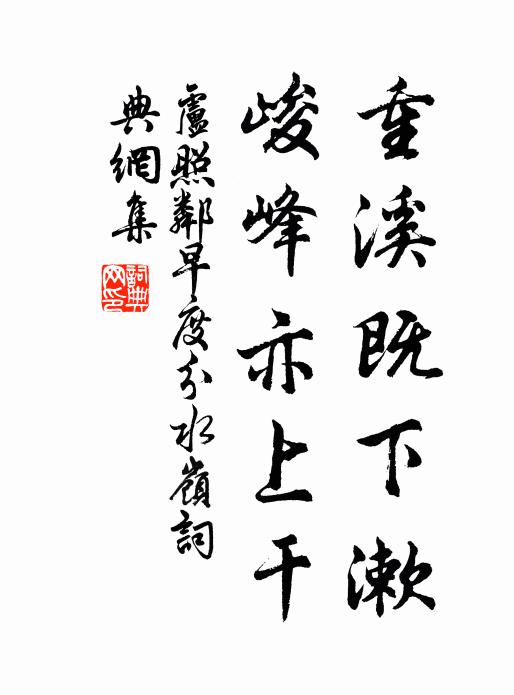 重溪既下漱
峻峰亦上干
盧照鄰早度分水嶺詞
典網集
詞典
网印